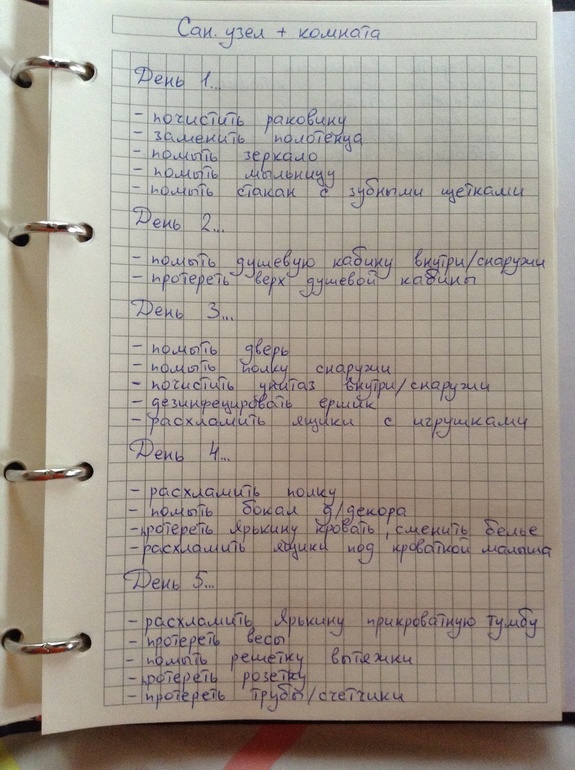 Сан. узел + комната
День 1...
- почистить раковину
- заменить полотенца
- помыть зеркало
- помыть мыльницу
- помыть стакан с зубными щетками
День 2...
- помыть душевую кабину внутри/снаружи
- протереть верх душевой кабины
День 3...
- помыть дверь
- помыть полку снаружи
- почистить унитаз внутри/снаружи
- дезинфецировать ершик
- расхламить ящики с игрушками
День 4...
- расхламить полку
- помыть бокал д/декора
- протереть Ярькину кровать, сменить белье
- расхламить ящики под кроваткой малыша
День 5...
- расхламить Ярькину прикроватную тумбу
- протереть весы
- помыть решетку вытяжки
- протереть розетку
- протереть трубы/счетчики